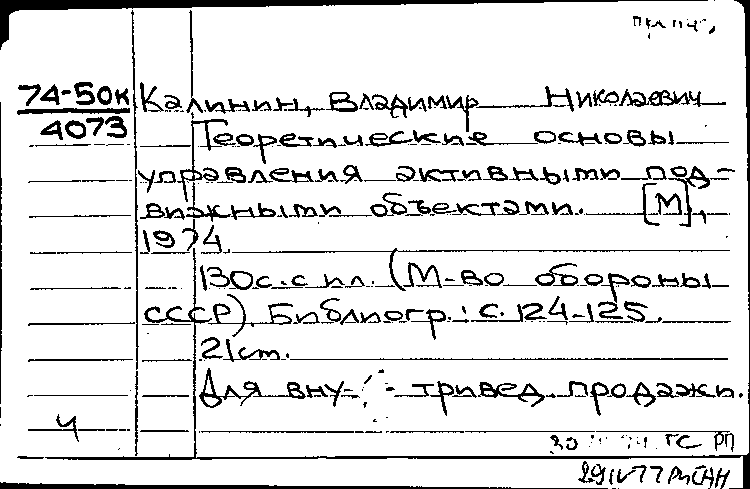 74-50к Калинин, Владимир Николаевич
4073 Теоретические основы
управления активными под-
вижными объектами. [М],
1974.
130с. с ил. (М-во обороны
СССР). Библиогр.: с. 124-125.
21см.
Для вну- тривед. продажи.
Ч
ГС РП
29 IV 77